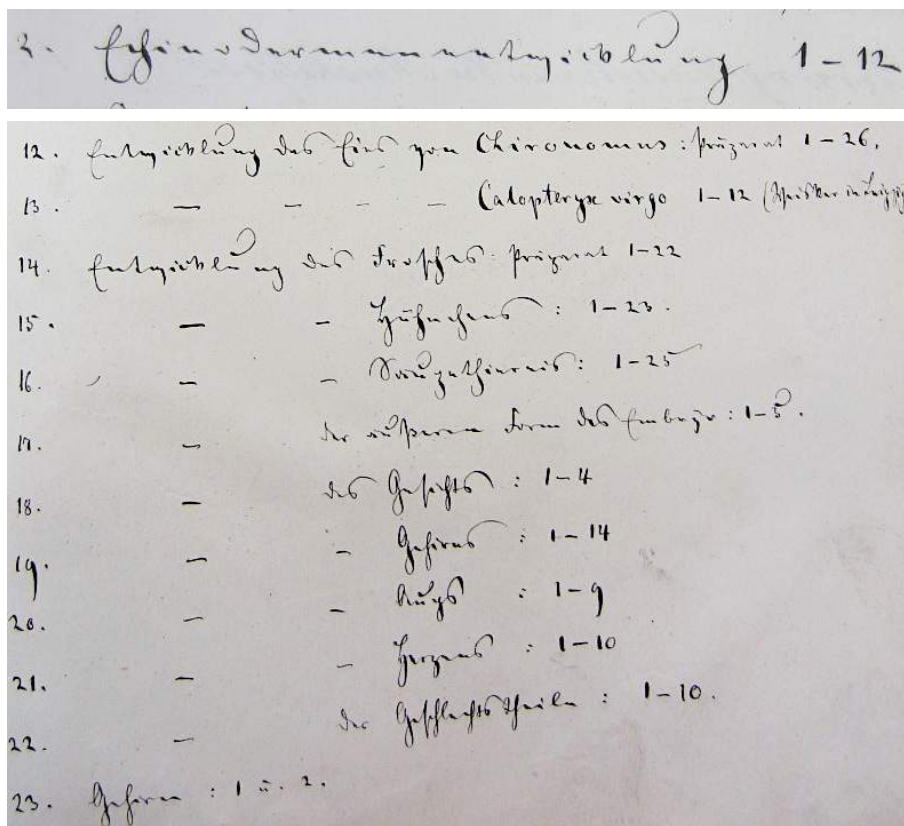 2. Echinodermenentwicklung 1-12
12. Entwicklung des Eies von Chironomus: Präparat 1-26.
13. — — — — Calopteryx virgo 1-12 (Weisker in Leipzig
14. Entwicklung des Frosches: Präparat 1-22
15. — — Hühnchens: 1-23.
16. — — Säugethiereies: 1-25
17. — der äußeren Form des Embryo: 1-5.
18. — des Gesichts: 1-4
19. — — Gehirns: 1-14
20. — — Augs: 1-9
21. — — Herzens: 1-10
22. — der Geschlechtstheile: 1-10.
23. Gehirn: 1 u. 2.